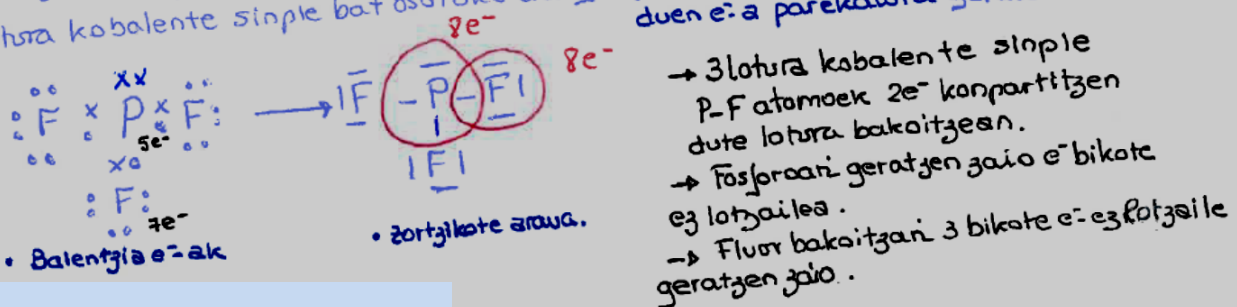 tura kobalente sinple bat
duen e⁻a
8e⁻
8e⁻
xx
F x P x F
5e⁻
xo
F
7e⁻
→ |F - P - F|
|F|
• Balentzia e⁻ak
• zortzikote araua.
→ 3 lotura kobalente sinple
P-F atomoek 2e⁻ konpartitzen
dute lotura bakoitzean.
→ Fosforoari geratzen zaio e⁻ bikote
ez lotzailea.
→ Fluor bakoitzari 3 bikote e⁻ ez lotzaile
geratzen zaio.